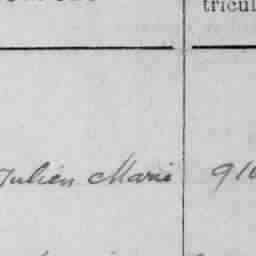 tricul
Julien Marie 910